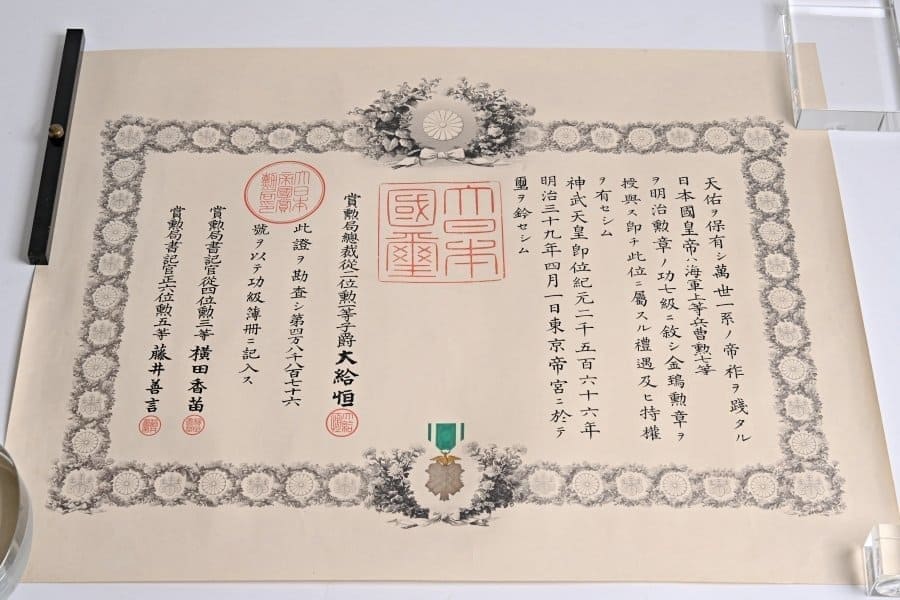 天佑ヲ保有シ萬世一系ノ帝祚ヲ踐タル
日本國皇帝ハ海軍上等兵曹勲七等
ヲ明治勲章ノ功七級ニ敘シ金鵄勲章ヲ
授與ス即チ此位ニ屬スル禮遇及ヒ特權
ヲ有セシム
神武天皇即位紀元二千五百六十六年
明治三十九年四月一日東京帝宮ニ於テ
璽ヲ鈐セシム
大日本
國璽
賞勲局總裁從二位勲一等子爵大給恒
此證ヲ勘査シ第四万八千八百七十六
號ヲ以テ功級簿冊ニ記入ス
大日本
帝國賞
勲局印
賞勲局書記官從四位勲三等横田香苗
賞勲局書記官正六位勲五等藤井善言